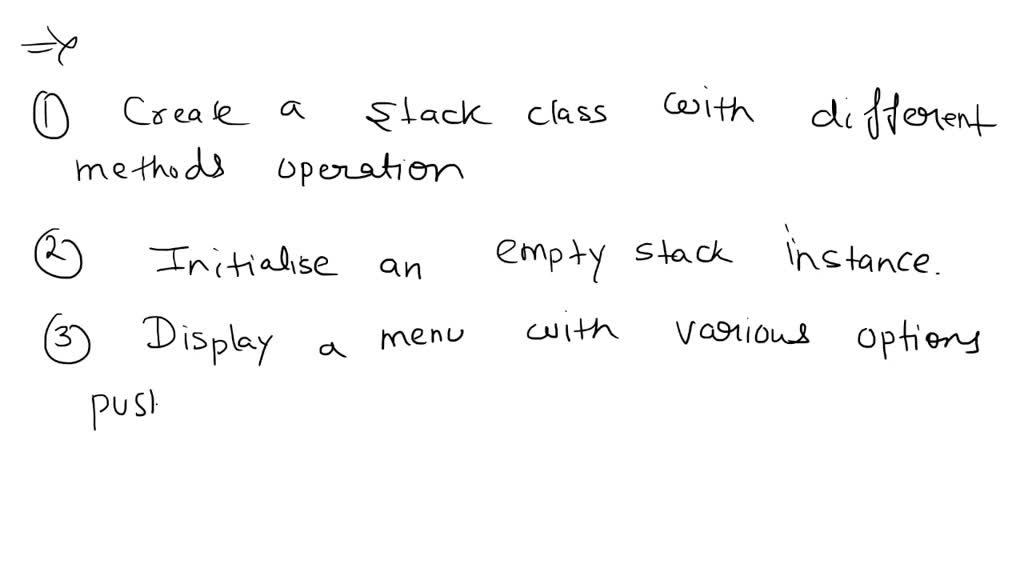 ⇒
① Create a stack class with different
methods operation
② Initialise an empty stack instance.
③ Display a menu with various options
push